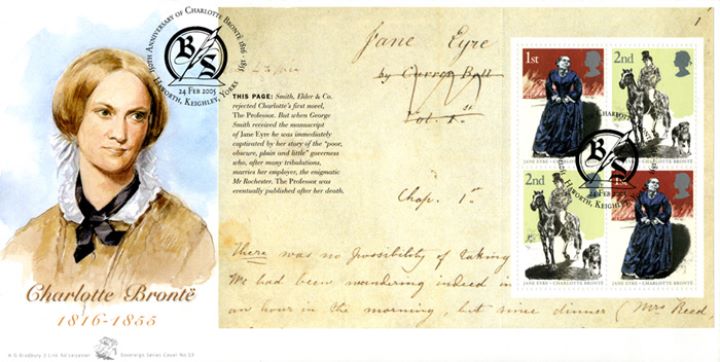 150TH ANNIVERSARY OF CHARLOTTE BRONTË 1816 - 1855
B S
24 FEB 2005
HAWORTH, KEIGHLEY, YORKS
Charlotte Brontë
1816-1855
A G Bradbury
Sovereign Series Cover No 53
THIS PAGE: Smith, Elder & Co.
rejected Charlotte's first novel,
The Professor. But when George
Smith received the manuscript
of Jane Eyre he was immediately
captivated by her story of the "poor,
obscure, plain and little" governess
who, after many tribulations,
marries her employer, the enigmatic
Mr Rochester. The Professor was
eventually published after her death.
1
Jane Eyre
by Currer Bell
Vol. 1.st
Chap. 1st
There was no possibility of taking
We had been wandering indeed in
an hour in the morning, but since dinner (Mrs Reed
1st
JANE EYRE · CHARLOTTE BRONTË
2nd
CHARLOTTE
B S
24 FEB 2005
HAWORTH, KEIGHLEY, YORKS
2nd
JANE EYRE · CHARLOTTE BRONTË
1st
JANE EYRE · CHARLOTTE BRONTË